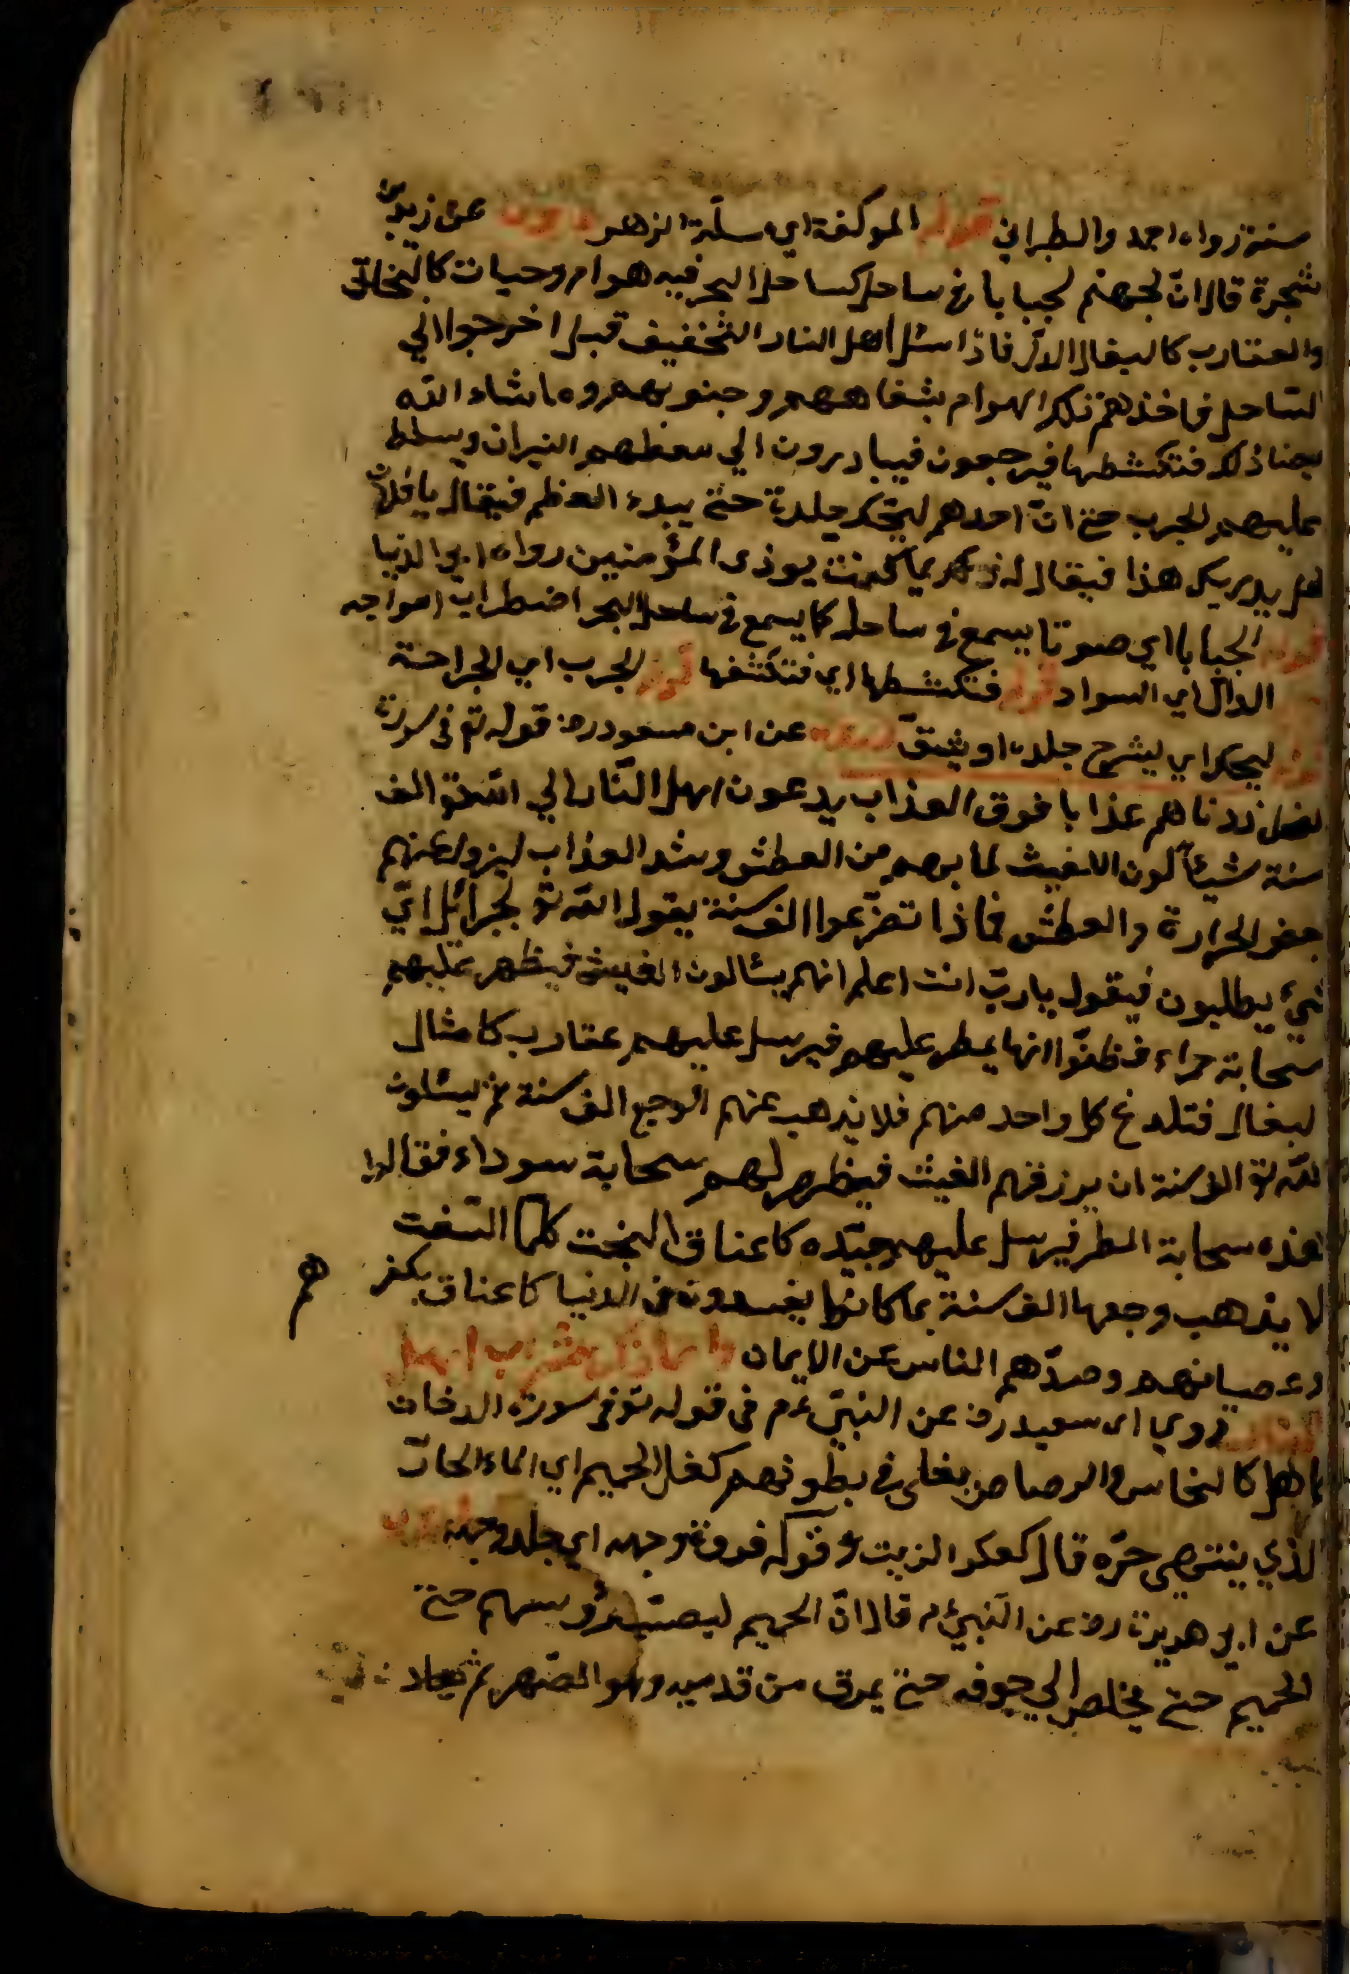 سنة رواه احمد والطبراني قوله الموكفة اي سلة الزهر عن زيد بن
شجرة قال ان لجهنم لجبابا في ساحل كساحل البحر فيه هوام وحيات كالبخاتي
والعقارب كالبغال الدل فاذا سئل اهل النار التخفيف قيل اخرجوا الي
الساحل فتاخذهم تلك الهوام بشفاههم وجنوبهم وما شاء الله
ذلك فتكشطها فيرجعون فيبادرون الي معظهم النيران ويسلط
عليهم الجرب حتى ان احدهم ليحك جلده حتى يبدء العظم فيقال يا فلان
هل يوذيك هذا فيقال له بما كنت يوذى المؤمنين رواه ابي الدنيا
قوله لجبابا اي صوتا يسمع في ساحل كما يسمع في ساحل البحر اضطراب امواجه
الدال اي السواد قوله فتكشطها اي فتكشفها قوله الجرب اي الجراحة
قوله ليحك اي يشرح جلده او شق عن ابن مسعود رض قوله تع في سورة
النحل زدناهم عذابا فوق العذاب يدعون اهل النار الي الله تع الف
سنة شيئا لون الغيث لما بهم من العطش وشد العذاب ليزول عنهم
بعض الحرارة والعطش فاذا تضرعوا الف سنة يقول الله تع لجبرائل اي
شيء يطلبون فيقول يا رب انت اعلم انهم يسالون الغيث فيظهر عليهم
سحابة حمراء فظنوا انها يمطر عليهم فيرسل عليهم عقارب كامثال
البغال فتلدغ كل واحد منهم فلا يذهب عنهم الوجع الف سنة ثم يسئلون
الله تع الف سنة ان يرزقهم الغيث فيظهر لهم سحابة سوداء فقالوا
هذه سحابة المطر فيرسل عليهم حيته كاعناق البخت كلما لسغت
لا يذهب وجعها الف سنة بما كانوا يفسدون في الدنيا كاعناق بكفر
هم
وعصيانهم وصدهم الناس عن الايمان واما شراب اهل
النار روي ابى سعيد رض عن النبي عم في قوله تع في سورة الدخان
كالمهل كالنحاس والرصاص يغلى في بطونهم كغلى الحميم اي الماء الحار
الذي ينتهى حره قال كعكر الزيت وقوله فروة وجهه اي جلد وجهه
عن ابي هريرة رض عن النبي م قال ان الحميم ليصب رؤسهم حتى
الحميم حتى يخلص الي جوفه حتى يمرق من قدميه وهو الصهر ثم يعاد